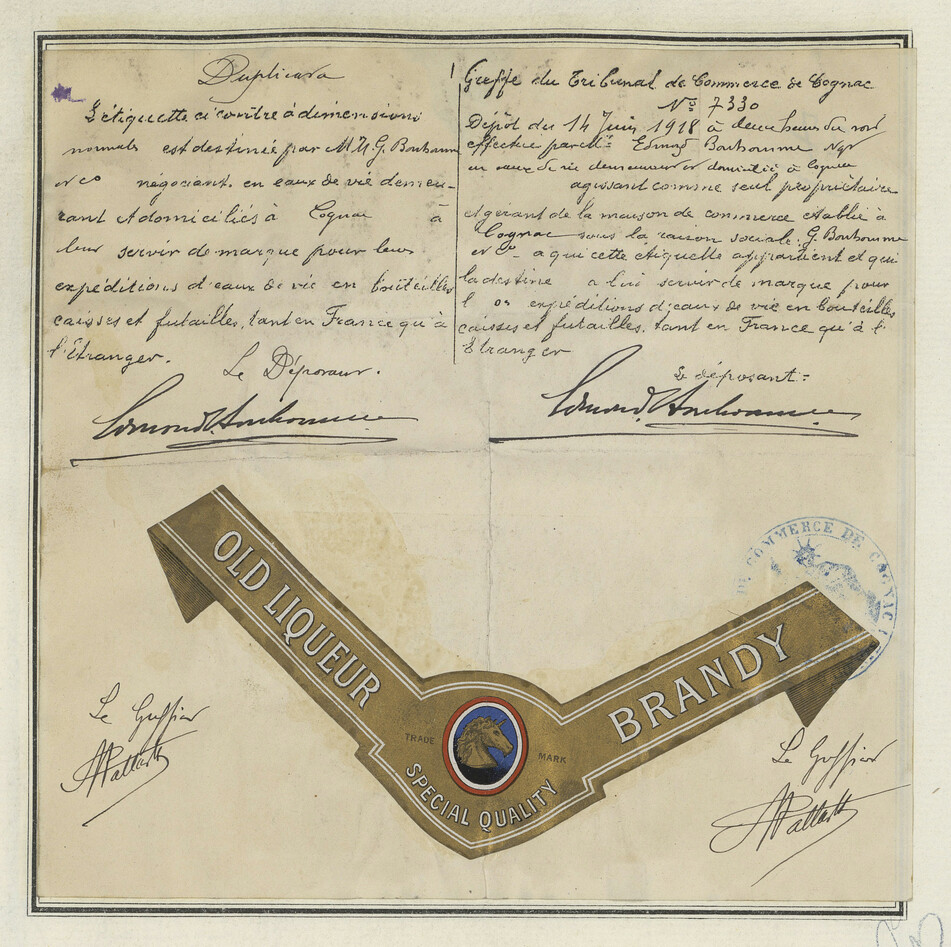 Duplicata
L'étiquette ci contre à dimensions
normales est destinée par M.M. G. Bonhomme
et Co négociant en eaux de vie demeu-
rant et domiciliés à Cognac à
leur servir de marque pour leurs
expéditions d'eaux de vie en bouteilles
caisses et futailles, tant en France qu'à
l'Etranger.
Le Déposant.
Edmond Bonhomme
Greffe du Tribunal de Commerce de Cognac
No 7330
Dépôt du 14 Juin 1918 à deux heures du soir
effectué par Mr Edmond Bonhomme Ngt
en eaux de vie demeurant et domicilié à Cognac
agissant comme seul propriétaire
et gérant de la maison de commerce établie à
Cognac sous la raison sociale: G. Bonhomme
et Co - a qui cette étiquette appartient et qui
la destine a lui servir de marque pour
expéditions d'eaux de vie en bouteilles
caisses et futailles, tant en France qu'à l'
Etranger
Le déposant:
Edmond Bonhomme
COMMERCE DE COGNAC
OLD LIQUEUR
BRANDY
TRADE MARK
SPECIAL QUALITY
Le Greffier
Le Greffier